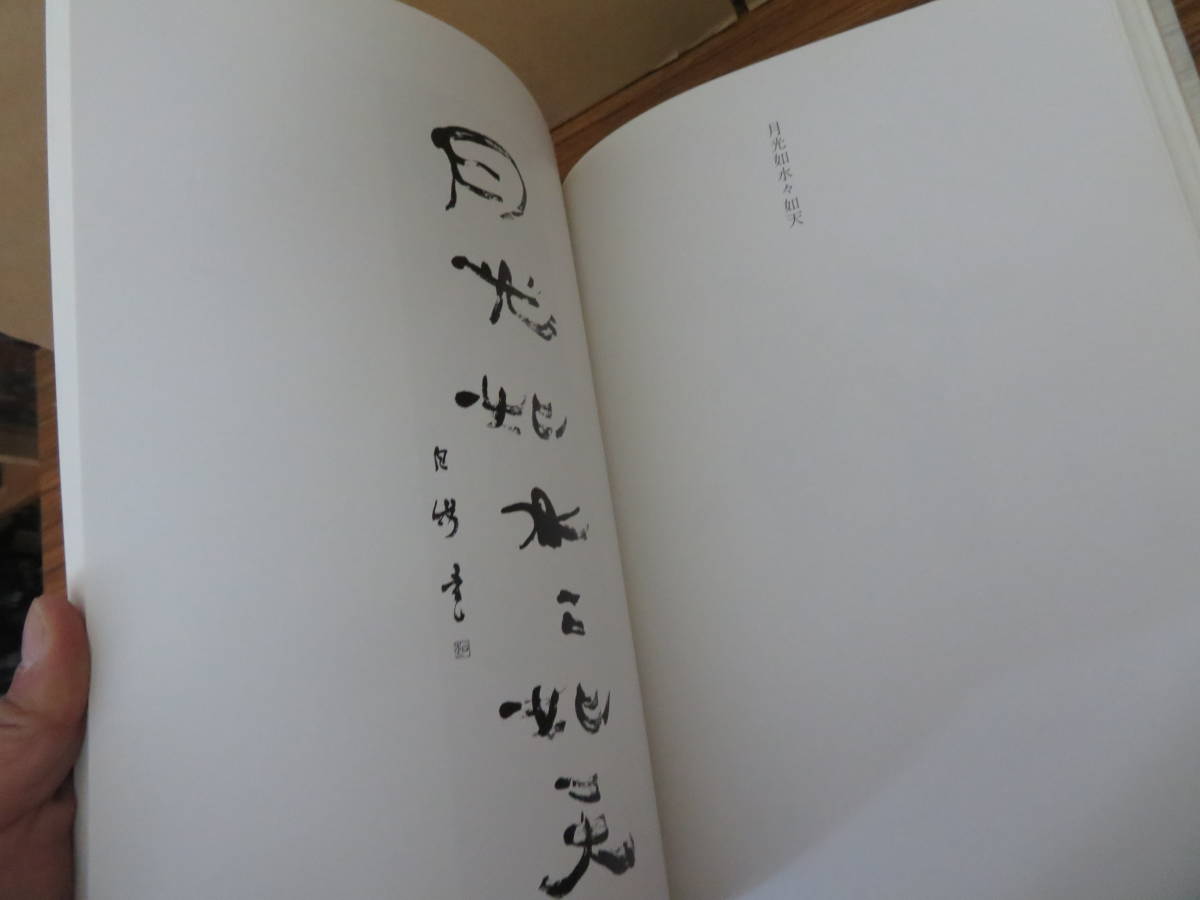 月光如水々如天
月光如水々如天
書